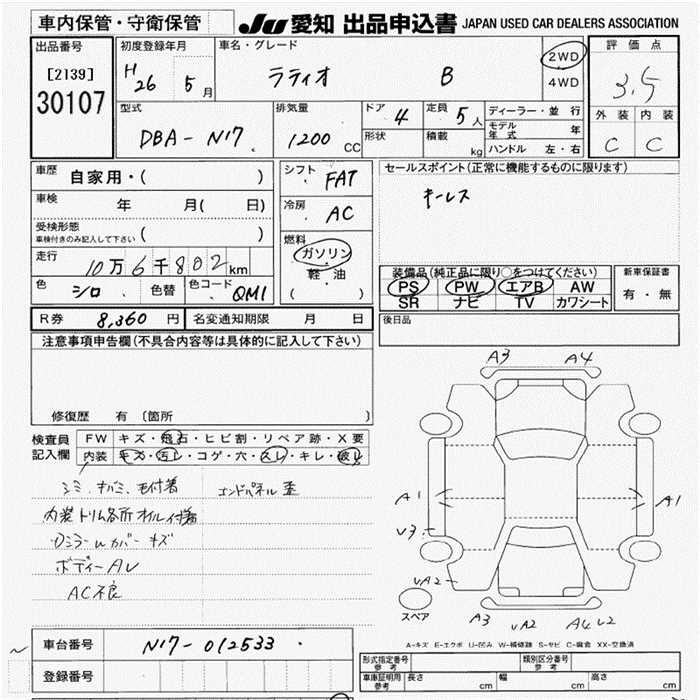 車内保管・守衛保管
JU 愛知 出品申込書 JAPAN USED CAR DEALERS ASSOCIATION
出品番号
[2139]
30107
初度登録年月
H26 5月
車名・グレード
ラティオ B
2WD
4WD
評価点
3.5
外装 内装
C C
型式
DBA-N17
排気量
1200 CC
ドア 4
形状
定員 5人
積載 kg
ディーラー・並行
モデル年式 年
ハンドル 左・右
車歴
自家用・( )
車検
年 月( 日)
受検形態
車検付きのみ記入して下さい ( )
走行
10万6千802km
色 シロ 色替 色コード QM1
シフト FAT
冷房 AC
燃料
ガソリン
軽・油
( )
セールスポイント(正常に機能するものに限ります)
キーレス
装備品(純正品に限り○をつけてください)
PS PW エアB AW
SR ナビ TV カワシート
新車保証書
有・無
R券 8,360円 名変通知期限 月 日
後日品
注意事項申告欄(不具合内容等は具体的に記入して下さい)
修復歴 有 〔箇所 〕
検査員記入欄
FW キズ・飛石・ヒビ割・リペア跡・X要
内装 キズ・汚レ・コゲ・穴・スレ・キレ・破レ
シミ、キバミ、毛付着 エンドパネル歪
内装トリム各所オイル付着
Dミラーuカバーキズ
ボディーAレ
AC不良
A3 A4
A1 A1
V3
VA2
スペア
A3 VA2 A4 V2
A-キズ E-エクボ U-凹み W-補修跡 S-サビ C-腐食 XX-交換済
車台番号 N17-012533
登録番号
形式指定番号 参考
類別区分番号 参考
車庫証明用 参考 長さ cm 幅 cm 高さ cm